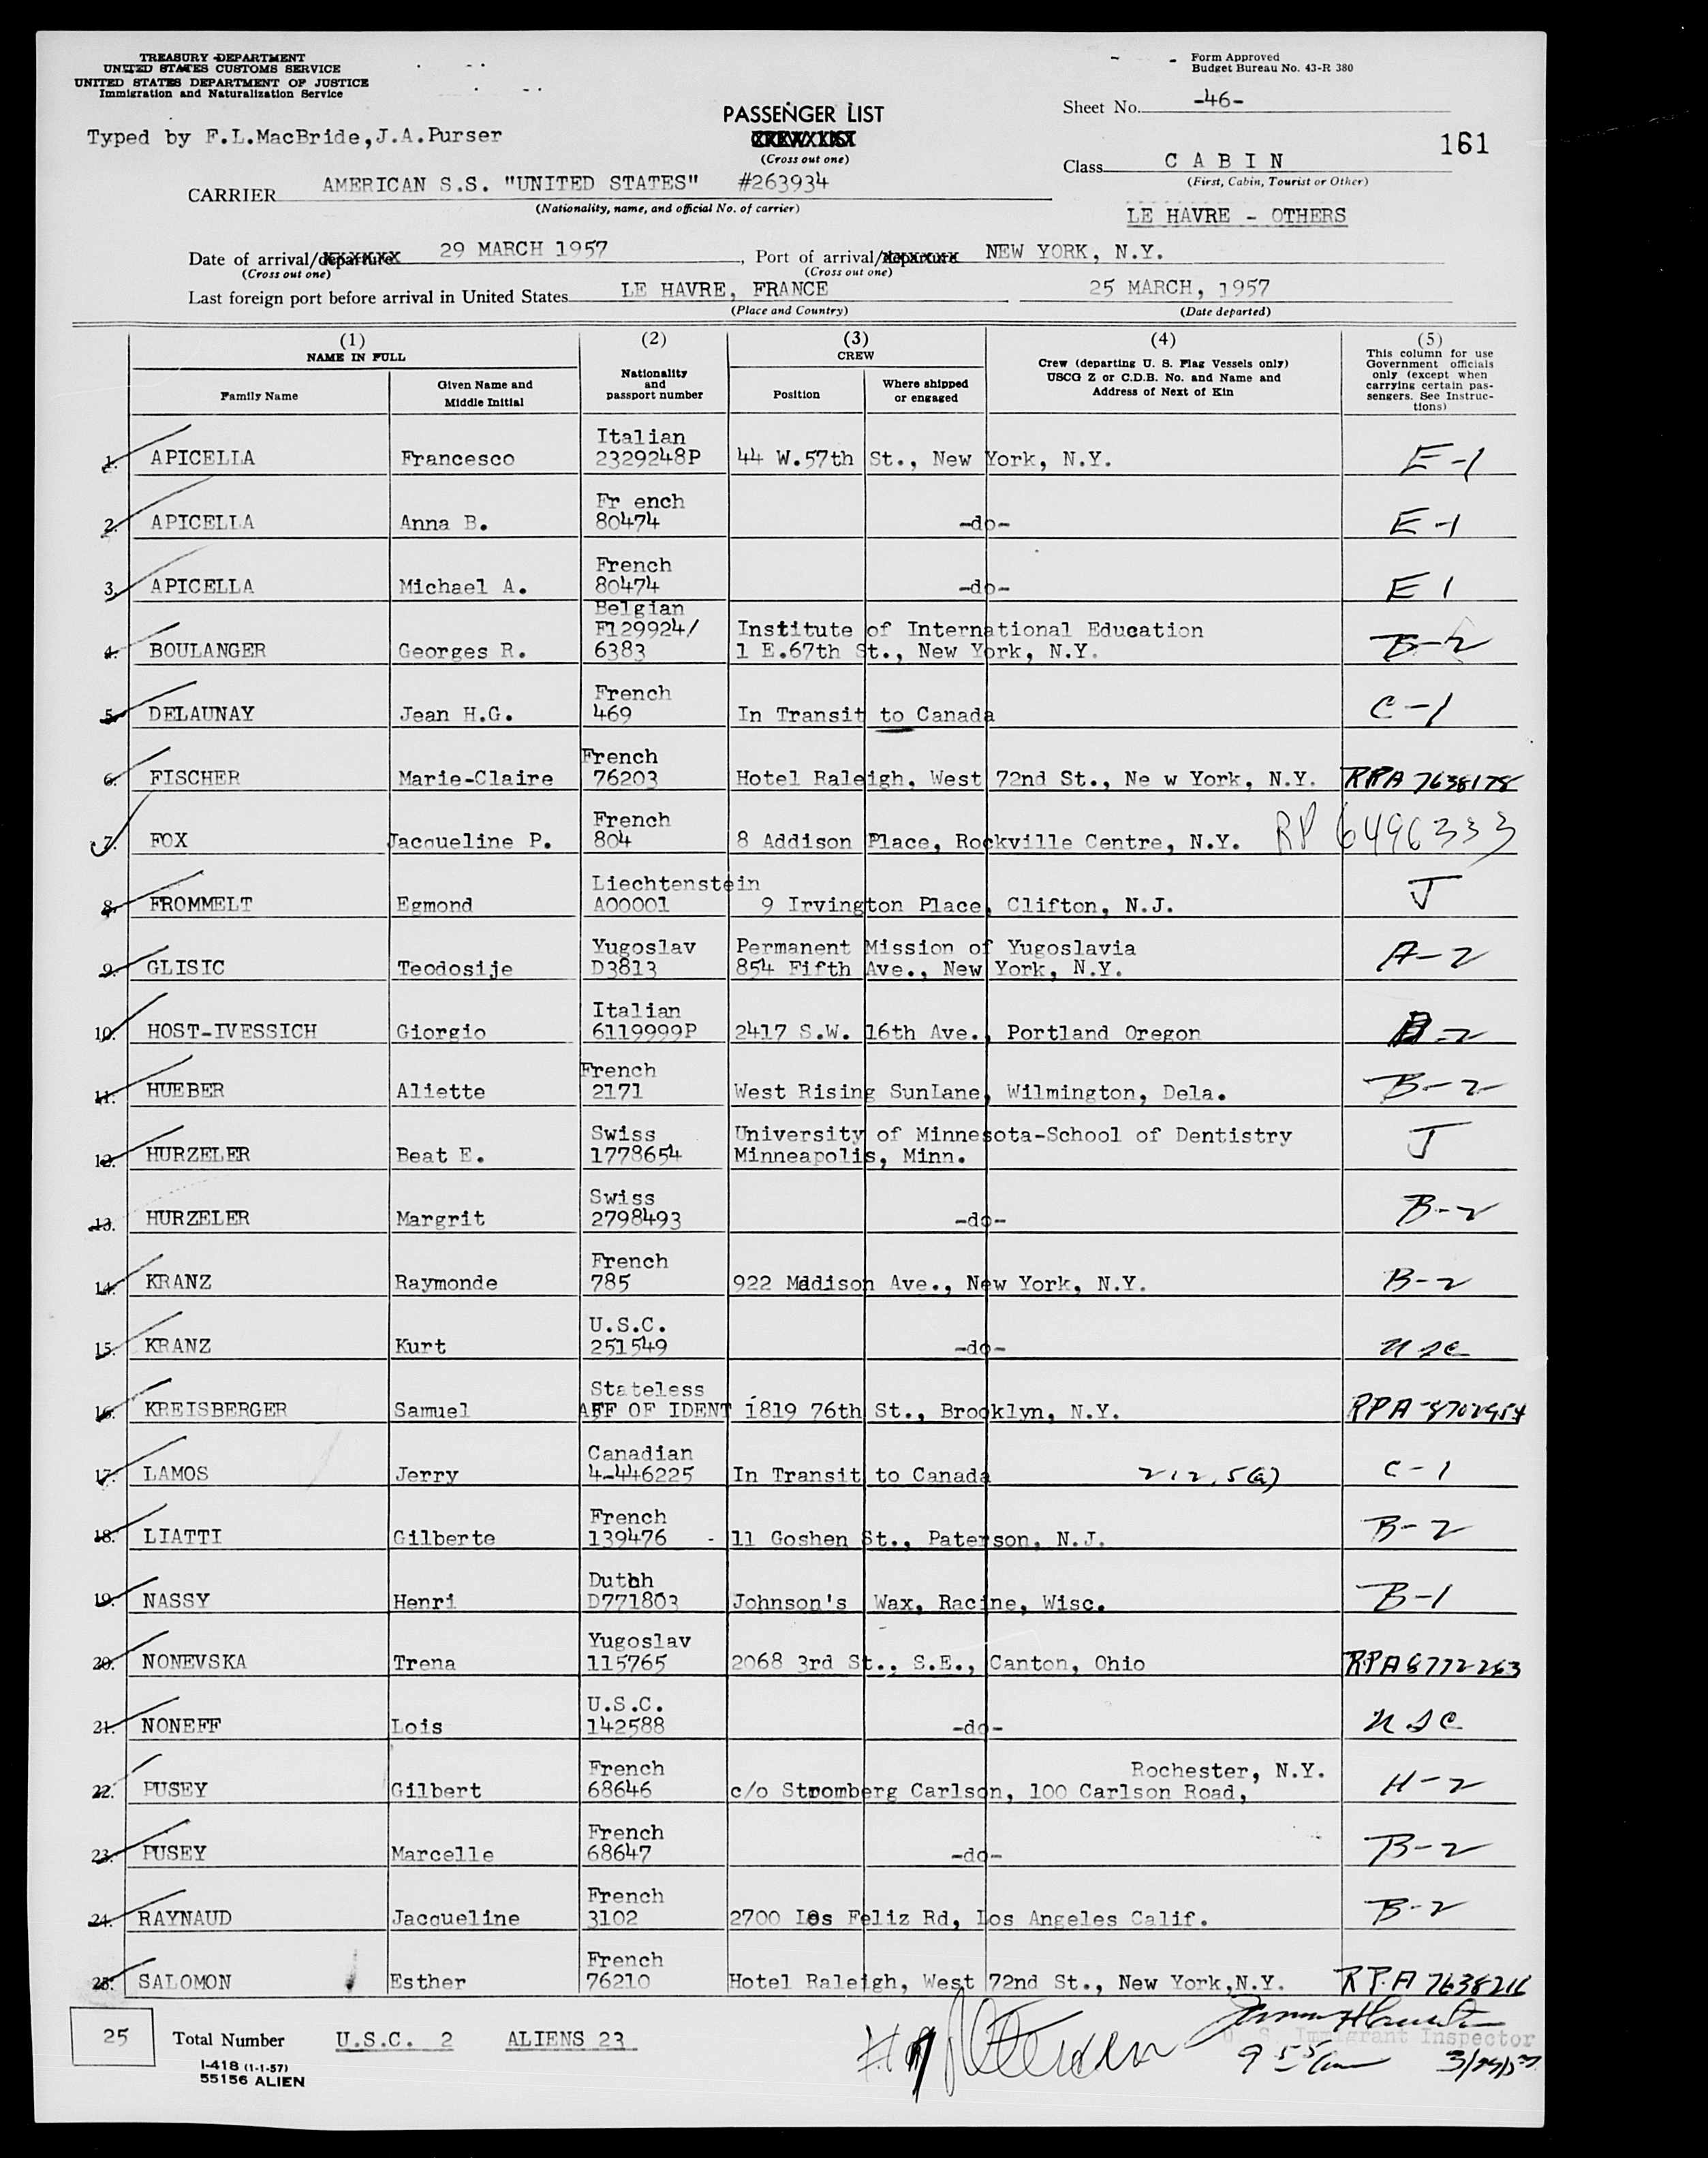 TREASURY DEPARTMENT
UNITED STATES CUSTOMS SERVICE
UNITED STATES DEPARTMENT OF JUSTICE
Immigration and Naturalization Service
Form Approved
Budget Bureau No. 43-R 380
PASSENGER LIST
CREW LIST
(Cross out one)
Sheet No. -46-
Typed by F.L.MacBride,J.A.Purser
161
Class C A B I N
(First, Cabin, Tourist or Other)
CARRIER AMERICAN S.S. "UNITED STATES" #263934
(Nationality, name, and official No. of carrier)
LE HAVRE - OTHERS
Date of arrival/departure 29 MARCH 1957, Port of arrival/departure NEW YORK, N.Y.
(Cross out one) (Cross out one)
Last foreign port before arrival in United States LE HAVRE, FRANCE 25 MARCH, 1957
(Place and Country) (Date departed)
(1) (2) (3) (4) (5)
NAME IN FULL
Family Name
Given Name and Middle Initial
Nationality and passport number
CREW
Position
Where shipped or engaged
Crew (departing U. S. Flag Vessels only)
USCG Z or C.D.B. No. and Name and
Address of Next of Kin
This column for use
Government officials
only (except when
carrying certain pas-
sengers. See Instruc-
tions)
Italian
1. APICELLA Francesco 2329248P 44 W.57th St., New York, N.Y. E-1
Fr ench
2. APICELLA Anna B. 80474 -do- E-1
French
3. APICELLA Michael A. 80474 -do- E 1
Belgian
F129924/ Institute of International Education
4. BOULANGER Georges R. 6383 1 E.67th St., New York, N.Y. B-2
French
5. DELAUNAY Jean H.G. 469 In Transit to Canada C-1
French
6. FISCHER Marie-Claire 76203 Hotel Raleigh, West 72nd St., Ne w York, N.Y. RPA 7638178
French
7. FOX Jacqueline P. 804 8 Addison Place, Rockville Centre, N.Y. RP 6496333
Liechtenstein
8. FROMMELT Egmond A00001 9 Irvington Place, Clifton, N.J. J
Yugoslav Permanent Mission of Yugoslavia
9. GLISIC Teodosije D3813 854 Fifth Ave., New York, N.Y. A-2
Italian
10. HOST-IVESSICH Giorgio 6119999P 2417 S.W. 16th Ave., Portland Oregon B-2
French
11. HUEBER Aliette 2171 West Rising SunLane, Wilmington, Dela. B-2
Swiss University of Minnesota-School of Dentistry
12. HURZELER Beat E. 1778654 Minneapolis, Minn. J
Swiss
13. HURZELER Margrit 2798493 -do- B-2
French
14. KRANZ Raymonde 785 922 Madison Ave., New York, N.Y. B-2
U.S.C.
15. KRANZ Kurt 251549 -do- USC
Stateless
16. KREISBERGER Samuel AFF OF IDENT 1819 76th St., Brooklyn, N.Y. RPA 8702954
Canadian
17. LAMOS Jerry 4-446225 In Transit to Canada 212.5(a) C-1
French
18. LIATTI Gilberte 139476 - 11 Goshen St., Paterson, N.J. B-2
Dutch
19. NASSY Henri D771803 Johnson's Wax, Racine, Wisc. B-1
Yugoslav
20. NONEVSKA Trena 115765 2068 3rd St., S.E., Canton, Ohio RPA 8772263
U.S.C.
21. NONEFF Lois 142588 -do- USC
French Rochester, N.Y.
22. PUSEY Gilbert 68646 c/o Stromberg Carlson, 100 Carlson Road, H-2
French
23. PUSEY Marcelle 68647 -do- B-2
French
24. RAYNAUD Jacqueline 3102 2700 Los Feliz Rd, Los Angeles Calif. B-2
French
25. SALOMON Esther 76210 Hotel Raleigh, West 72nd St., New York,N.Y. RPA 7638216
25 Total Number U.S.C. 2 ALIENS 23
U. S. Immigrant Inspector
I-418 (1-1-57)
55156 ALIEN
9 55 am 3/29/57